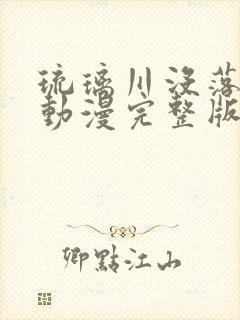 琉璃川没落
動漫完整版
卿點江山